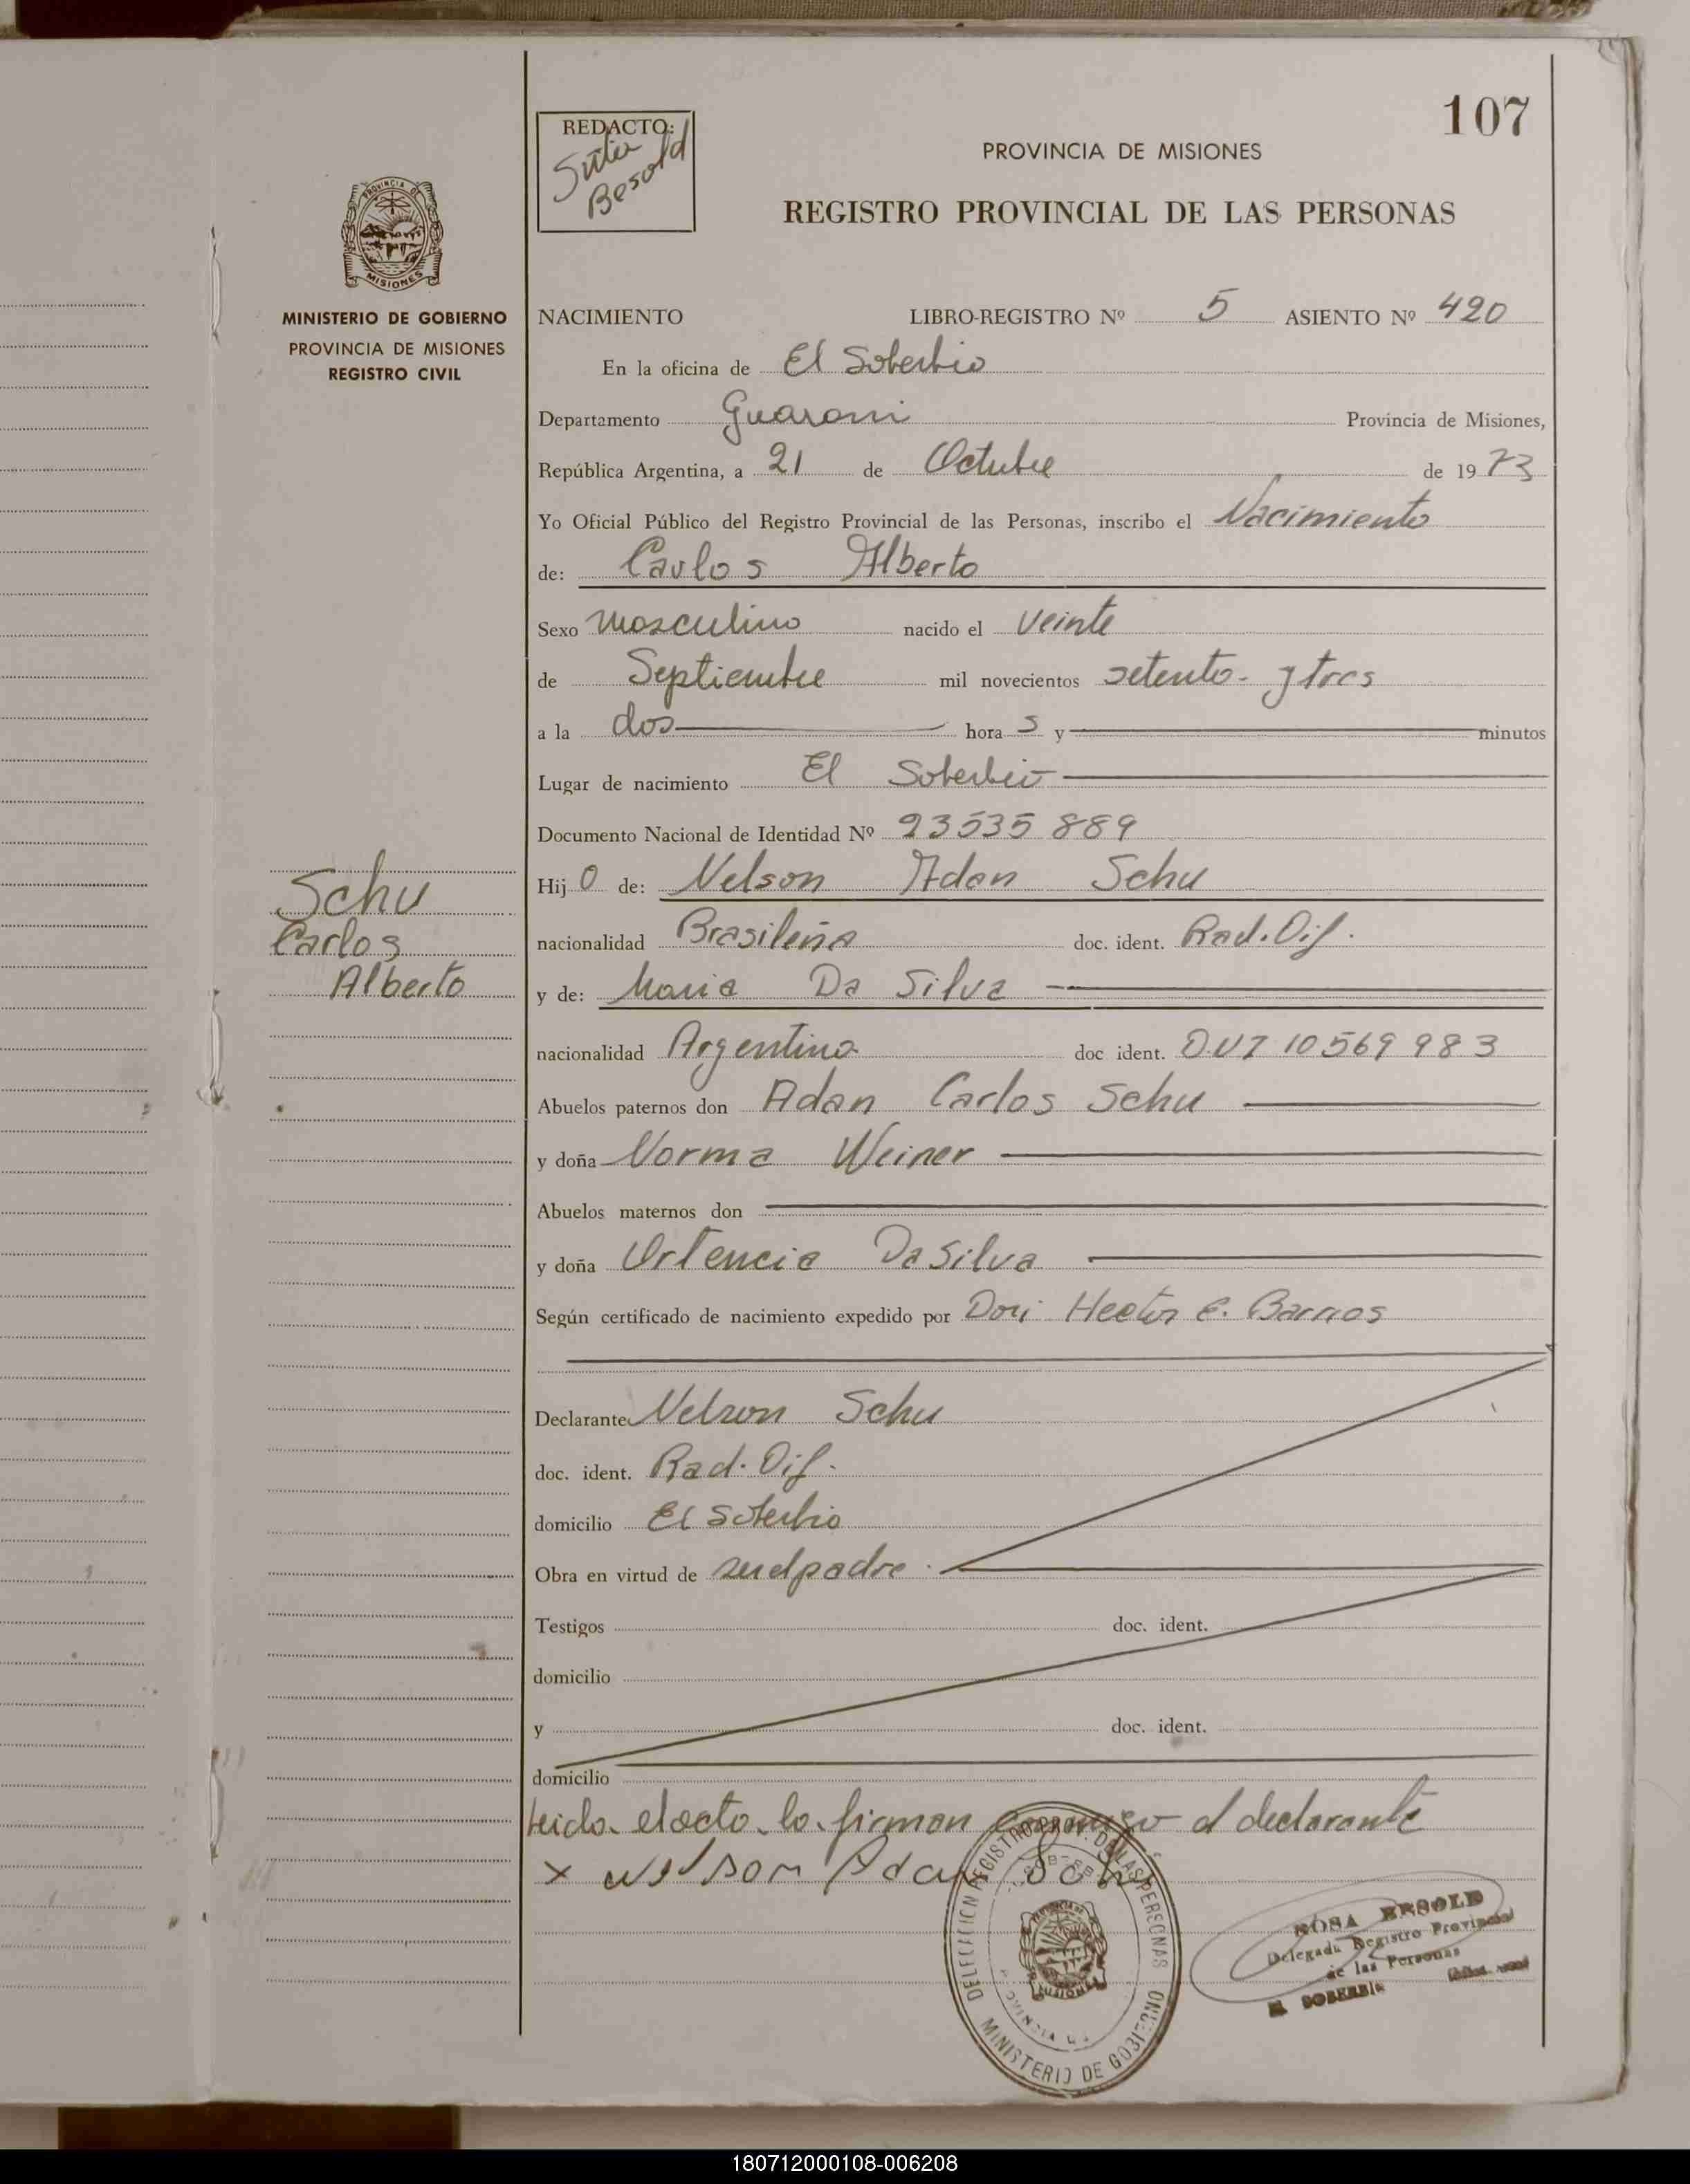 107
REDACTO:
Besold
PROVINCIA DE MISIONES
REGISTRO PROVINCIAL DE LAS PERSONAS
PROVINCIA DE
MISIONES
MINISTERIO DE GOBIERNO
PROVINCIA DE MISIONES
REGISTRO CIVIL
NACIMIENTO LIBRO-REGISTRO Nº 5 ASIENTO Nº 420
En la oficina de El Soberbio
Departamento Guarani Provincia de Misiones,
República Argentina, a 21 de Octubre de 1973
Yo Oficial Público del Registro Provincial de las Personas, inscribo el Nacimiento
de: Carlos Alberto
Sexo Masculino nacido el Veinte
de Septiembre mil novecientos setenta y tres
a la dos hora s y minutos
Lugar de nacimiento El Soberbio
Documento Nacional de Identidad Nº 23535889
Hij o de: Nelson Adan Schu
Schu
Carlos
Alberto
nacionalidad Brasileña doc. ident. Rad. Dif.
y de: Maria Da Silva
nacionalidad Argentina doc ident. DUI 10569983
Abuelos paternos don Adan Carlos Schu
y doña Norma Weiner
Abuelos maternos don
y doña Ortencia Da Silva
Según certificado de nacimiento expedido por Don Hector E. Barrios
Declarante Nelson Schu
doc. ident. Rad. Dif.
domicilio El Soberbio
Obra en virtud de ser el padre.
Testigos doc. ident.
domicilio
y doc. ident.
domicilio
Leida el acta la firman conmigo el declarante
x Nelson Adan Schu
DELEGACION REGISTRO PROV. DE LAS PERSONAS
MINISTERIO DE GOBIERNO
MISIONES
ROSA BESOLD
Delegada Registro Provincial
de las Personas
EL SOBERBIO
180712000108-006208